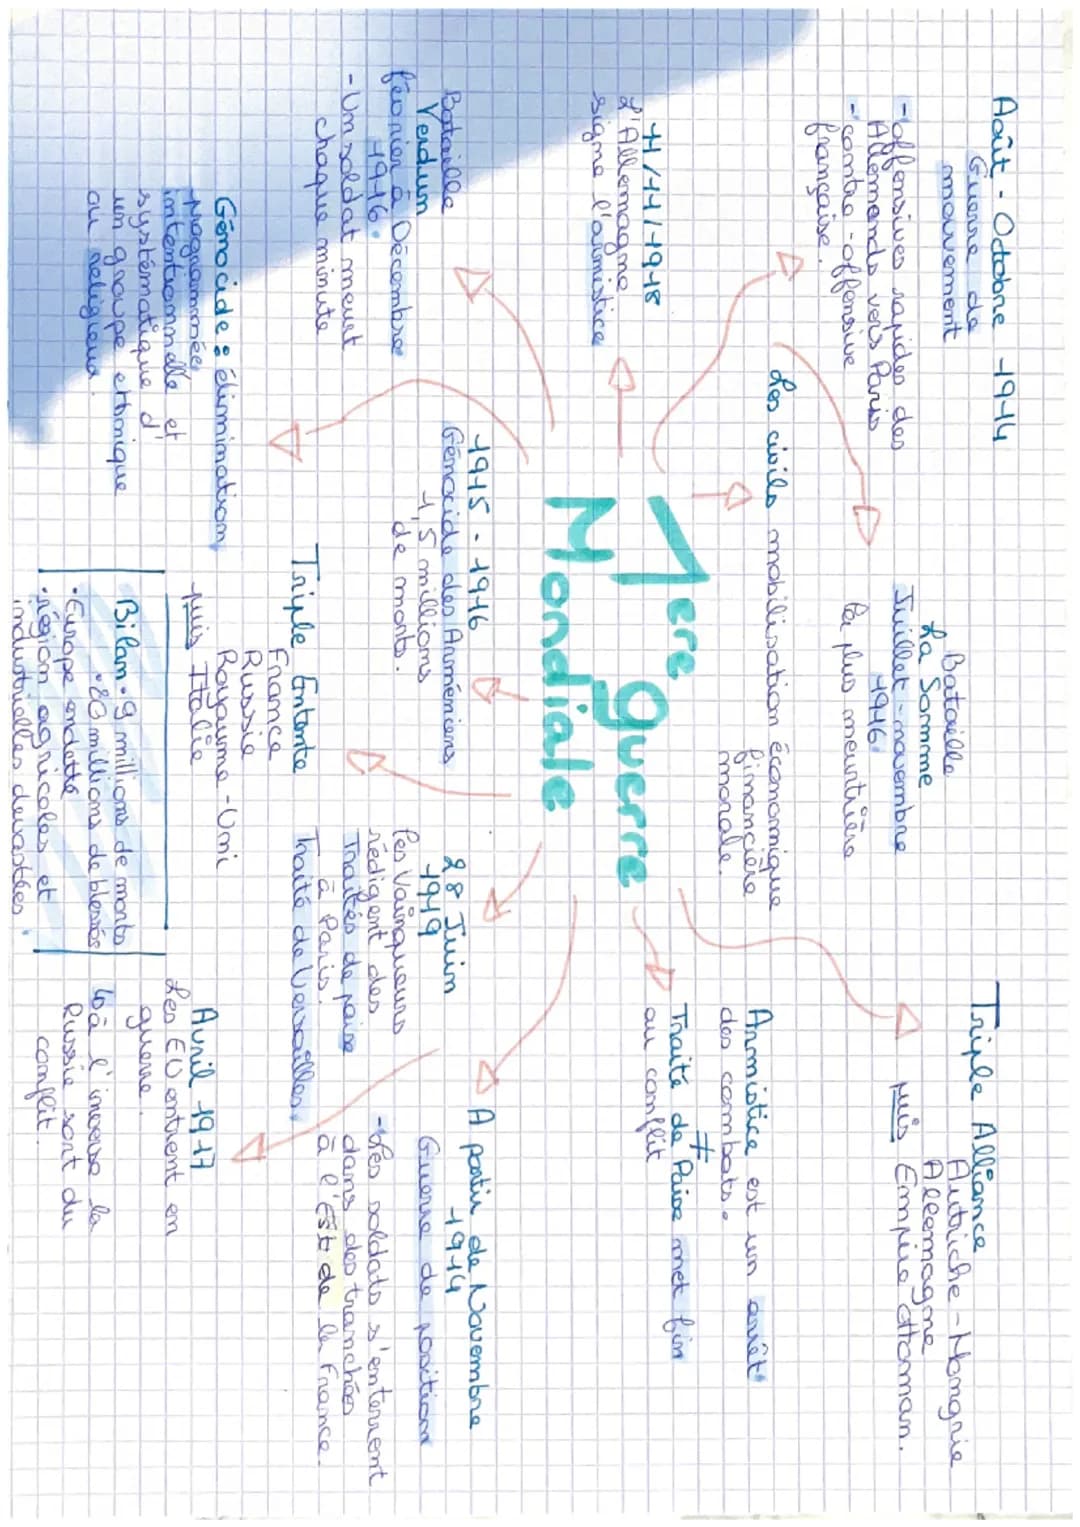 Août - Octobre 1914
Guerre de
mouvement
- offensives rapides des
Allemands vers Paris
- contre-offensive
française.
Bataille
La Somme
Juillet-novembre
1916
la plus meurtrière
Triple Alliance
Autriche-Hongrie
Allemagne
puis Empire ottoman.
Les civils mobilisation économique
financière
morale.
11/11/1918
L'Allemagne
signe l'armistice
1ere guerre
Mondiale
Armistice est un arrêt
des combats.
≠
Traité de Paix met fin
au conflit
Bataille
Verdun
février à Décembre
1916.
- Un soldat meurt
chaque minute
1915-1916
Génocide des Arméniens
1,5 millions
de morts.
28 Juin
1919
Les Vainqueurs
rédigent des
Traités de paix
à Paris.
Traité de Versailles.
A partir de Novembre
1914
Guerre de position
- Les soldats s'enterrent
dans des tranchées
à l'Est de la France.
Génocide : élimination
programmée,
intentionnelle et
systématique d'
un groupe ethnique
ou religieux.
Triple Entente
France
Russie
Royaume-Uni
puis Italie
Bilan • 9 millions de morts
• 20 millions de blessés
• Europe endetté
• région agricoles et
industrielles dévastées.
Avril 1917
Les EU entrent en
guerre.
↳ à l'inverse la
Russie sort du
conflit.